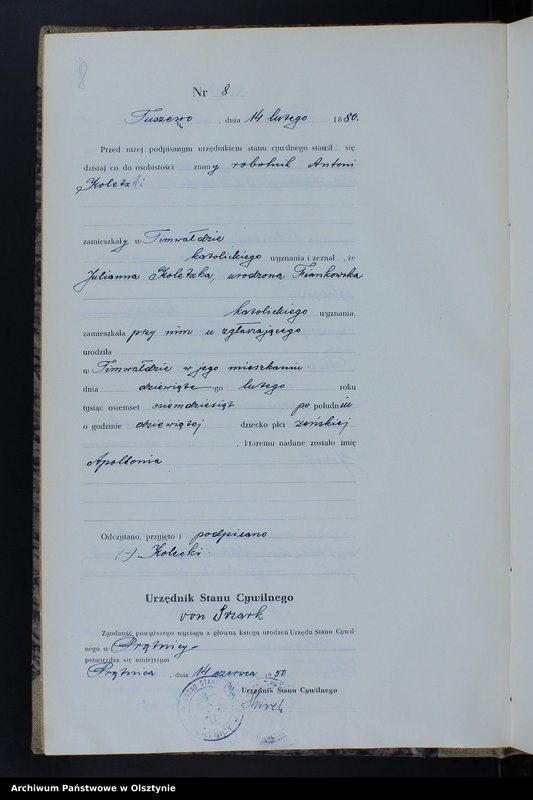 8
Nr 8
Tuszewo, dnia 14 lutego 1880.
Przed niżej podpisanym urzędnikiem stanu cywilnego stawił się
dzisiaj co do osobistości znany robotnik Antoni
Koletzki
zamieszkały w Timwałdzie
katolickiego wyznania i zeznał, że
Julianna Koletzka, urodzona
katolickiego wyznania,
zamieszkała przy nim u zgłaszającego
urodziła
w Timwałdzie w jego mieszkaniu
dnia dziewiąte-go lutego roku
tysiąc osiemset osiemdziesiąt po południu
o godzinie dziewiątej dziecko płci żeńskiej
, któremu nadane zostało imię
Apollonia
Odczytano, przyjęto i podpisano
(-) Kolecki.
Urzędnik Stanu Cywilnego
von
Zgodność powyższego wyciągu z główną księgą urodzeń Urzędu Stanu Cywil-
nego w Prątnicy
potwierdza się niniejszym
Prątnica, dnia 14 czerwca 1950
Urzędnik Stanu Cywilnego
Archiwum Państwowe w Olsztynie